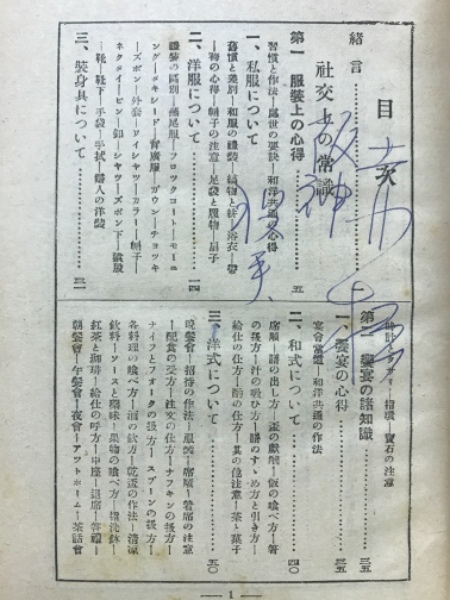 目次
緒言
社交上の常識
第一 服装上の心得
習慣と作法―處世の要訣―和洋共通の心得
一、私服について……五
舊慣と差別―和服の禮裝―縞物と絣―浴衣―帶
―袴の心得―帽子の注意―足袋と履物―扇子
二、洋服について……一四
禮裝の區別―燕尾服―フロックコート―モーニ
ング―タキシード―背廣服―ガウン―チョッキ
―ズボン―外套―ワイシャツ―カラー―帽子―
ネクタイ―ピン―釦―シャツ―ズボン下―
―靴―靴下―手袋―手拭―婦人の洋裝
三、裝身具について……三一
時計―指環―寶石の注意
第二 饗宴の諸知識……三五
一、饗宴の心得……三五
宴會常識―和洋共通の作法
二、和式について……四〇
席順―膳の出し方―盃の獻酬―飯の喰べ方―箸
の扱方―汁の吸ひ方―膳のすゝめ方と引き方―
給仕の仕方―酌の仕方―其の他注意―茶と菓子
三、洋式について……五〇
晩餐會―招待の作法―服裝―席順―着席の注意
―配食の受方―注文の仕方―ナフキンの扱方―
ナイフとフオークの扱方―スプーンの扱方―
各料理の喰べ方―酒の飲方―乾盃の作法―清涼
飲料―ソースと藥味―果物の喰べ方―指洗鉢―
紅茶と珈琲―給仕の呼方―中座―退席―答禮―
朝餐會―午餐會―夜會―アットホーム―茶話會
1